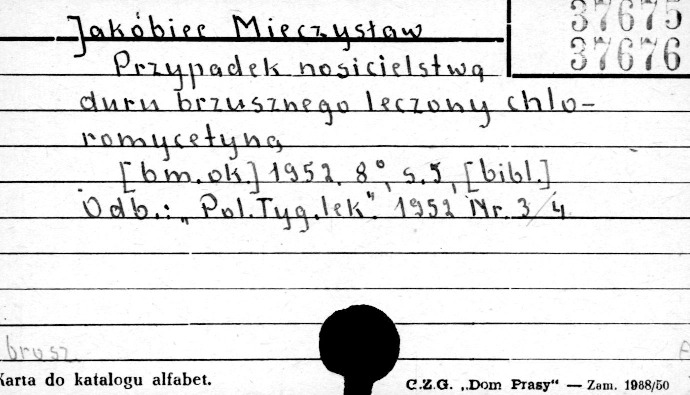 Jakóbiec Mieczysław
37675
37676
Przypadek nosicielstwa
duru brzusznego leczony chlo-
romycetyną
[bm.ok.] 1952. 8°, s.5, [bibl.]
Odb.: „Pol.Tyg.lek". 1952 Nr. 3/4
brusz
Karta do katalogu alfabet.
C.Z.G. „Dom Prasy“ — Zam. 1988/50